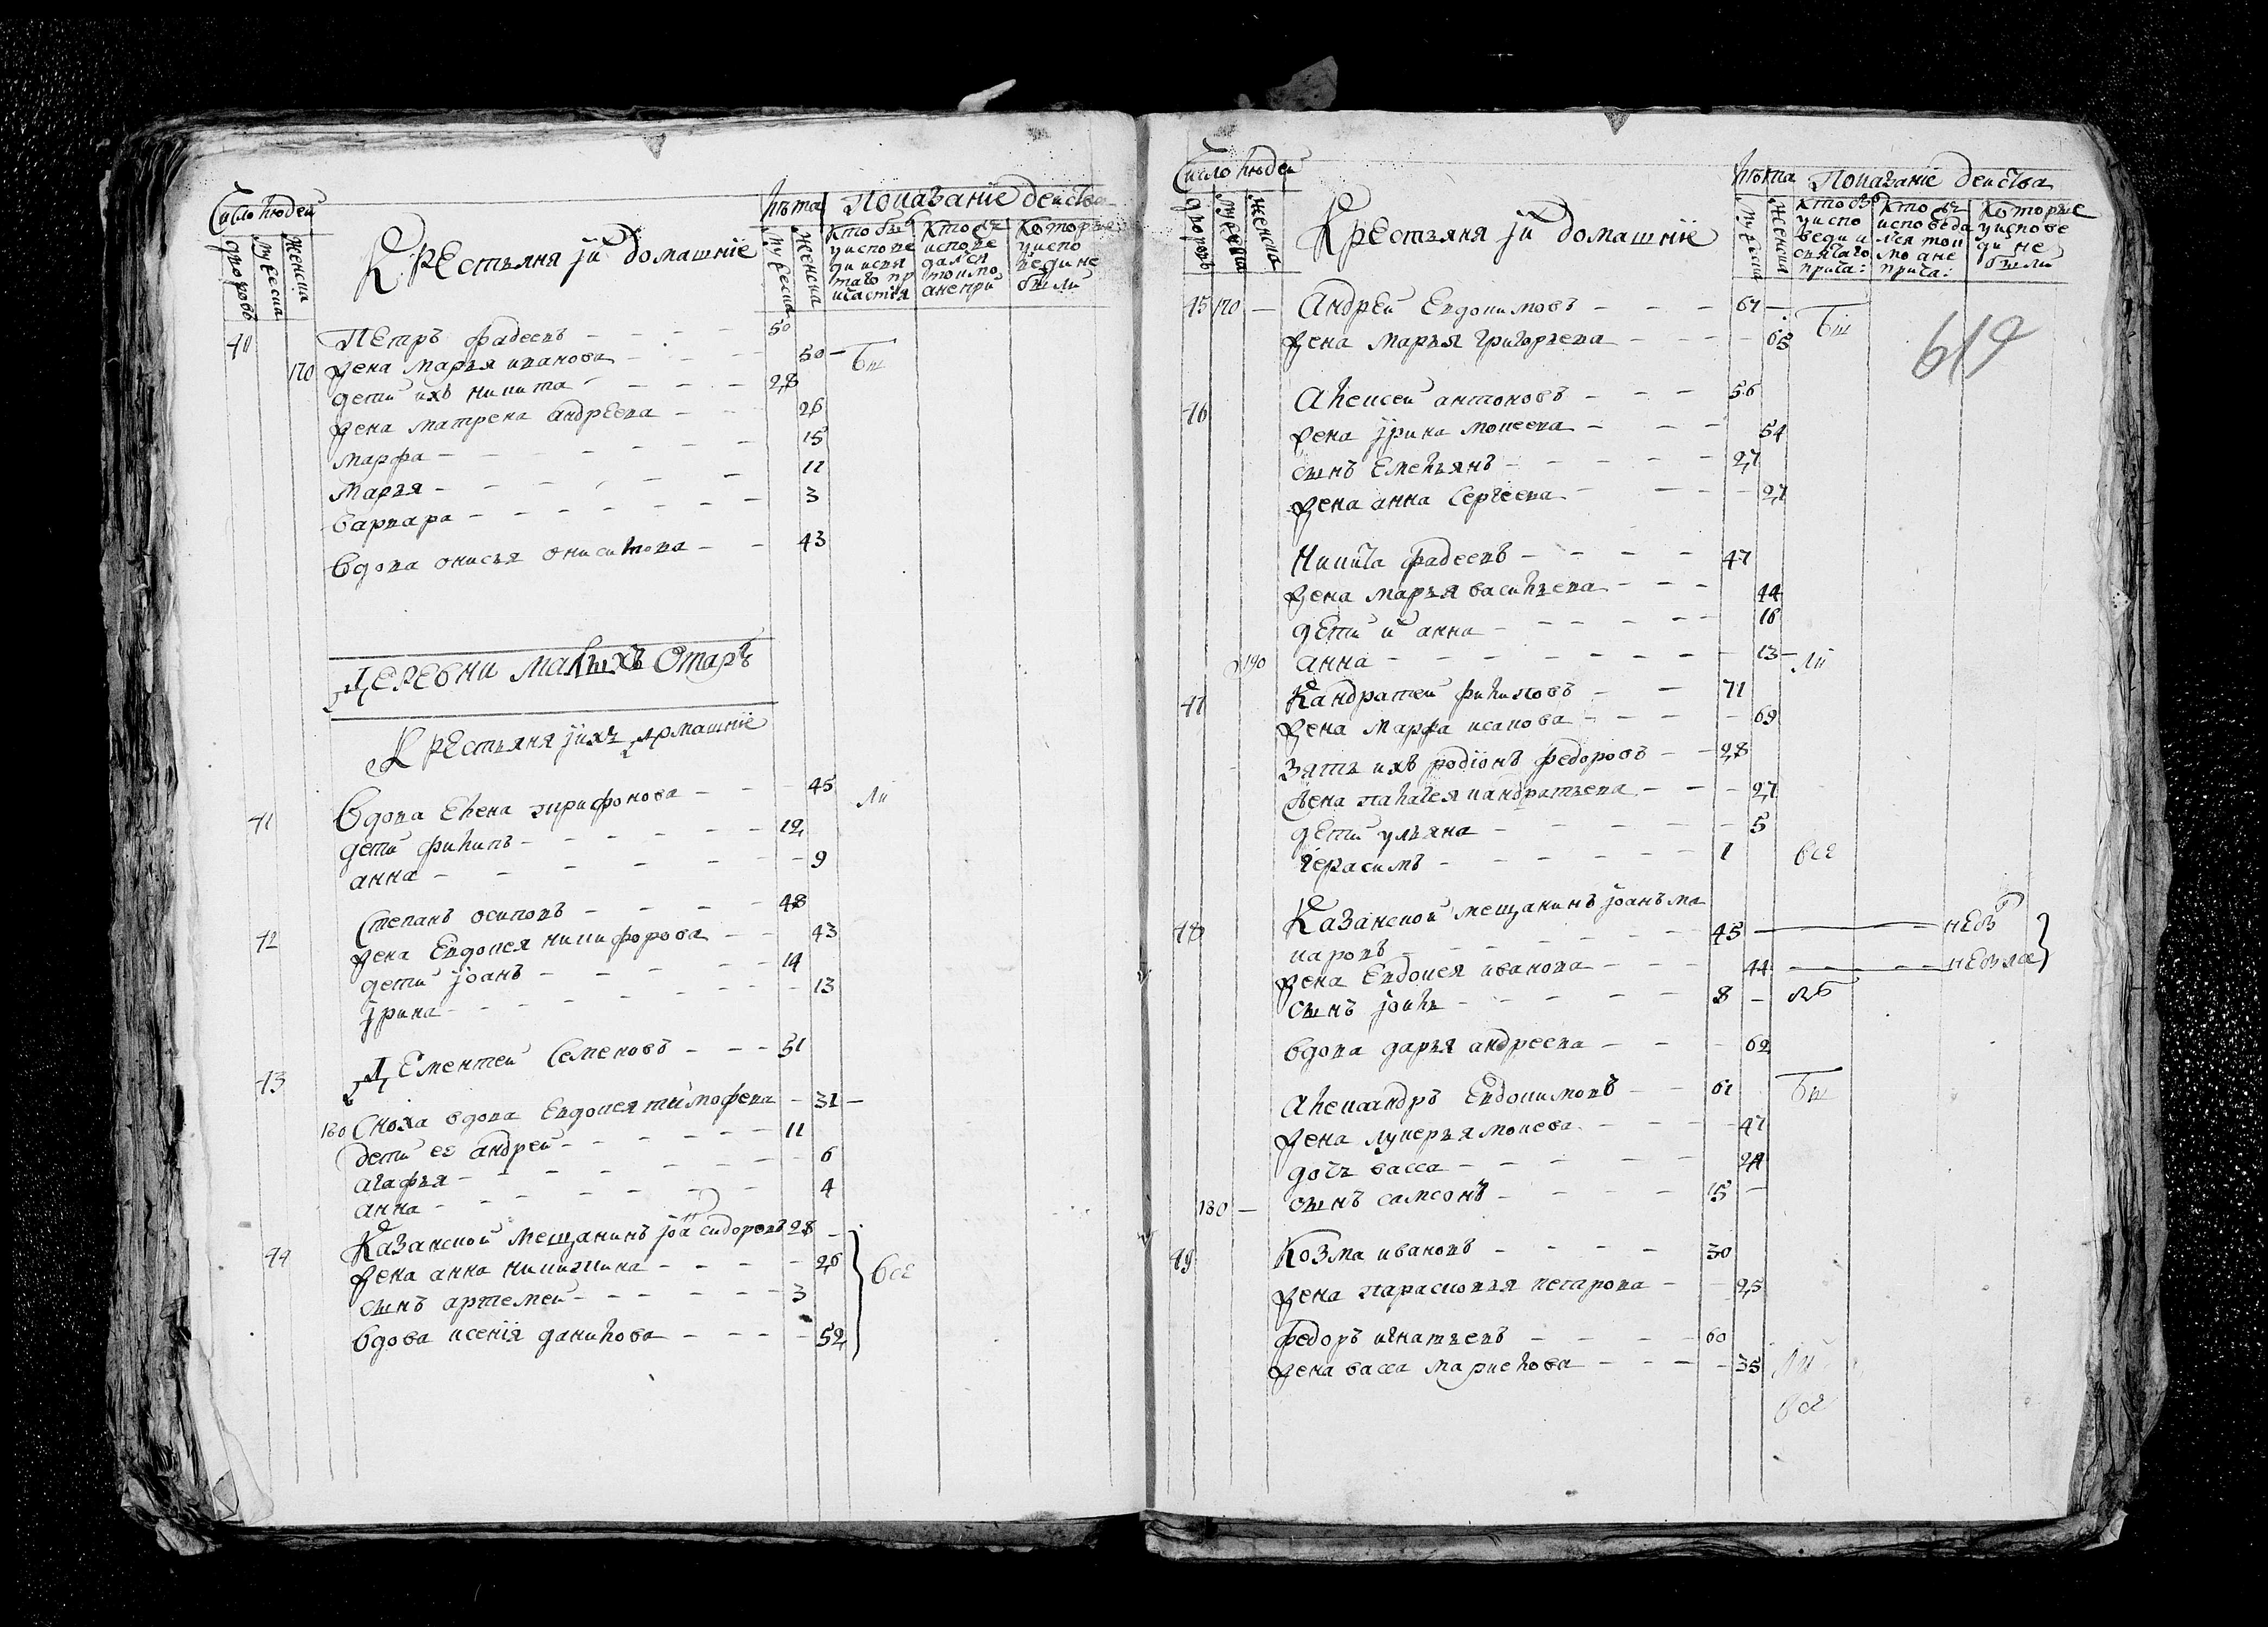 Число людей
дворовъ
мужеска
женска
Крестьяня ји домашніе
лѣта
мужеска
женска
показаніе действа
кто былъ у исповеди и святаго причастія
кто исповедался токмо а не при
которые у исповеди не были
40 Петръ фадеевъ 50
170 жена марья иванова 50 бы
дети ихъ никита 28
жена матрена андреева 26
марфа 15
марья 11
варвара 3
вдова онисья
43
Деревни малыхъ Отаръ
Крестьяня јихъ домашніе
41 вдова елена трифонова 45 ли
дети филипъ 12
анна 9
42 степанъ осиповъ 48
жена Евдокея никифорова 43
дети јоанъ 14
јрина 13
43 Дементей Семеновъ 51
180 сноха вдова Евдокея тимофева 31
дети ее андрей 11
агафья 6
анна 4
44 Казанской мещанинъ јоа сидоровъ 28
жена анна никитина 26 все
сынъ артемей 3
вдова ксенія данилова 52
Число людей
дворовъ
мужеска
женска
Крестьяня ји домашніе
лѣта
мужеска
женска
показаніе действа
кто былъ у исповеди и святаго прича:
кто исповедался токмо а не прича:
которые у исповеди не были
619
45 170 Андрей Евдокимовъ 67
жена марья григорьева 65 бы
46 алексей антоновъ 56
жена јрина мокеева 54
сынъ Емельянъ 27
жена анна сергеева 27
Никита фадеевъ 47
жена марья васильева 44
дети и анна 16
190 анна 13 ли
47 Кандратей филиповъ 71
жена марфа исакова 69
зять ихъ родіонъ федоровъ 28
жена палагея кандратьева 27
дети ульяна 5
герасимъ 1 все
48 Казанской мещанинъ јоанъ макаровъ 45
жена Евдокея иванова 44
сынъ јоиль 8
вдова дарья андреева 62
александръ Евдокимовъ 61 бы
жена лукерья мокева 47
дочь васса 24
180 сынъ самсонъ 15
49 Козма ивановъ 30
жена парасковья петрова 25
федоръ игнатьевъ 60
жена васса маркелова 35 ли
все